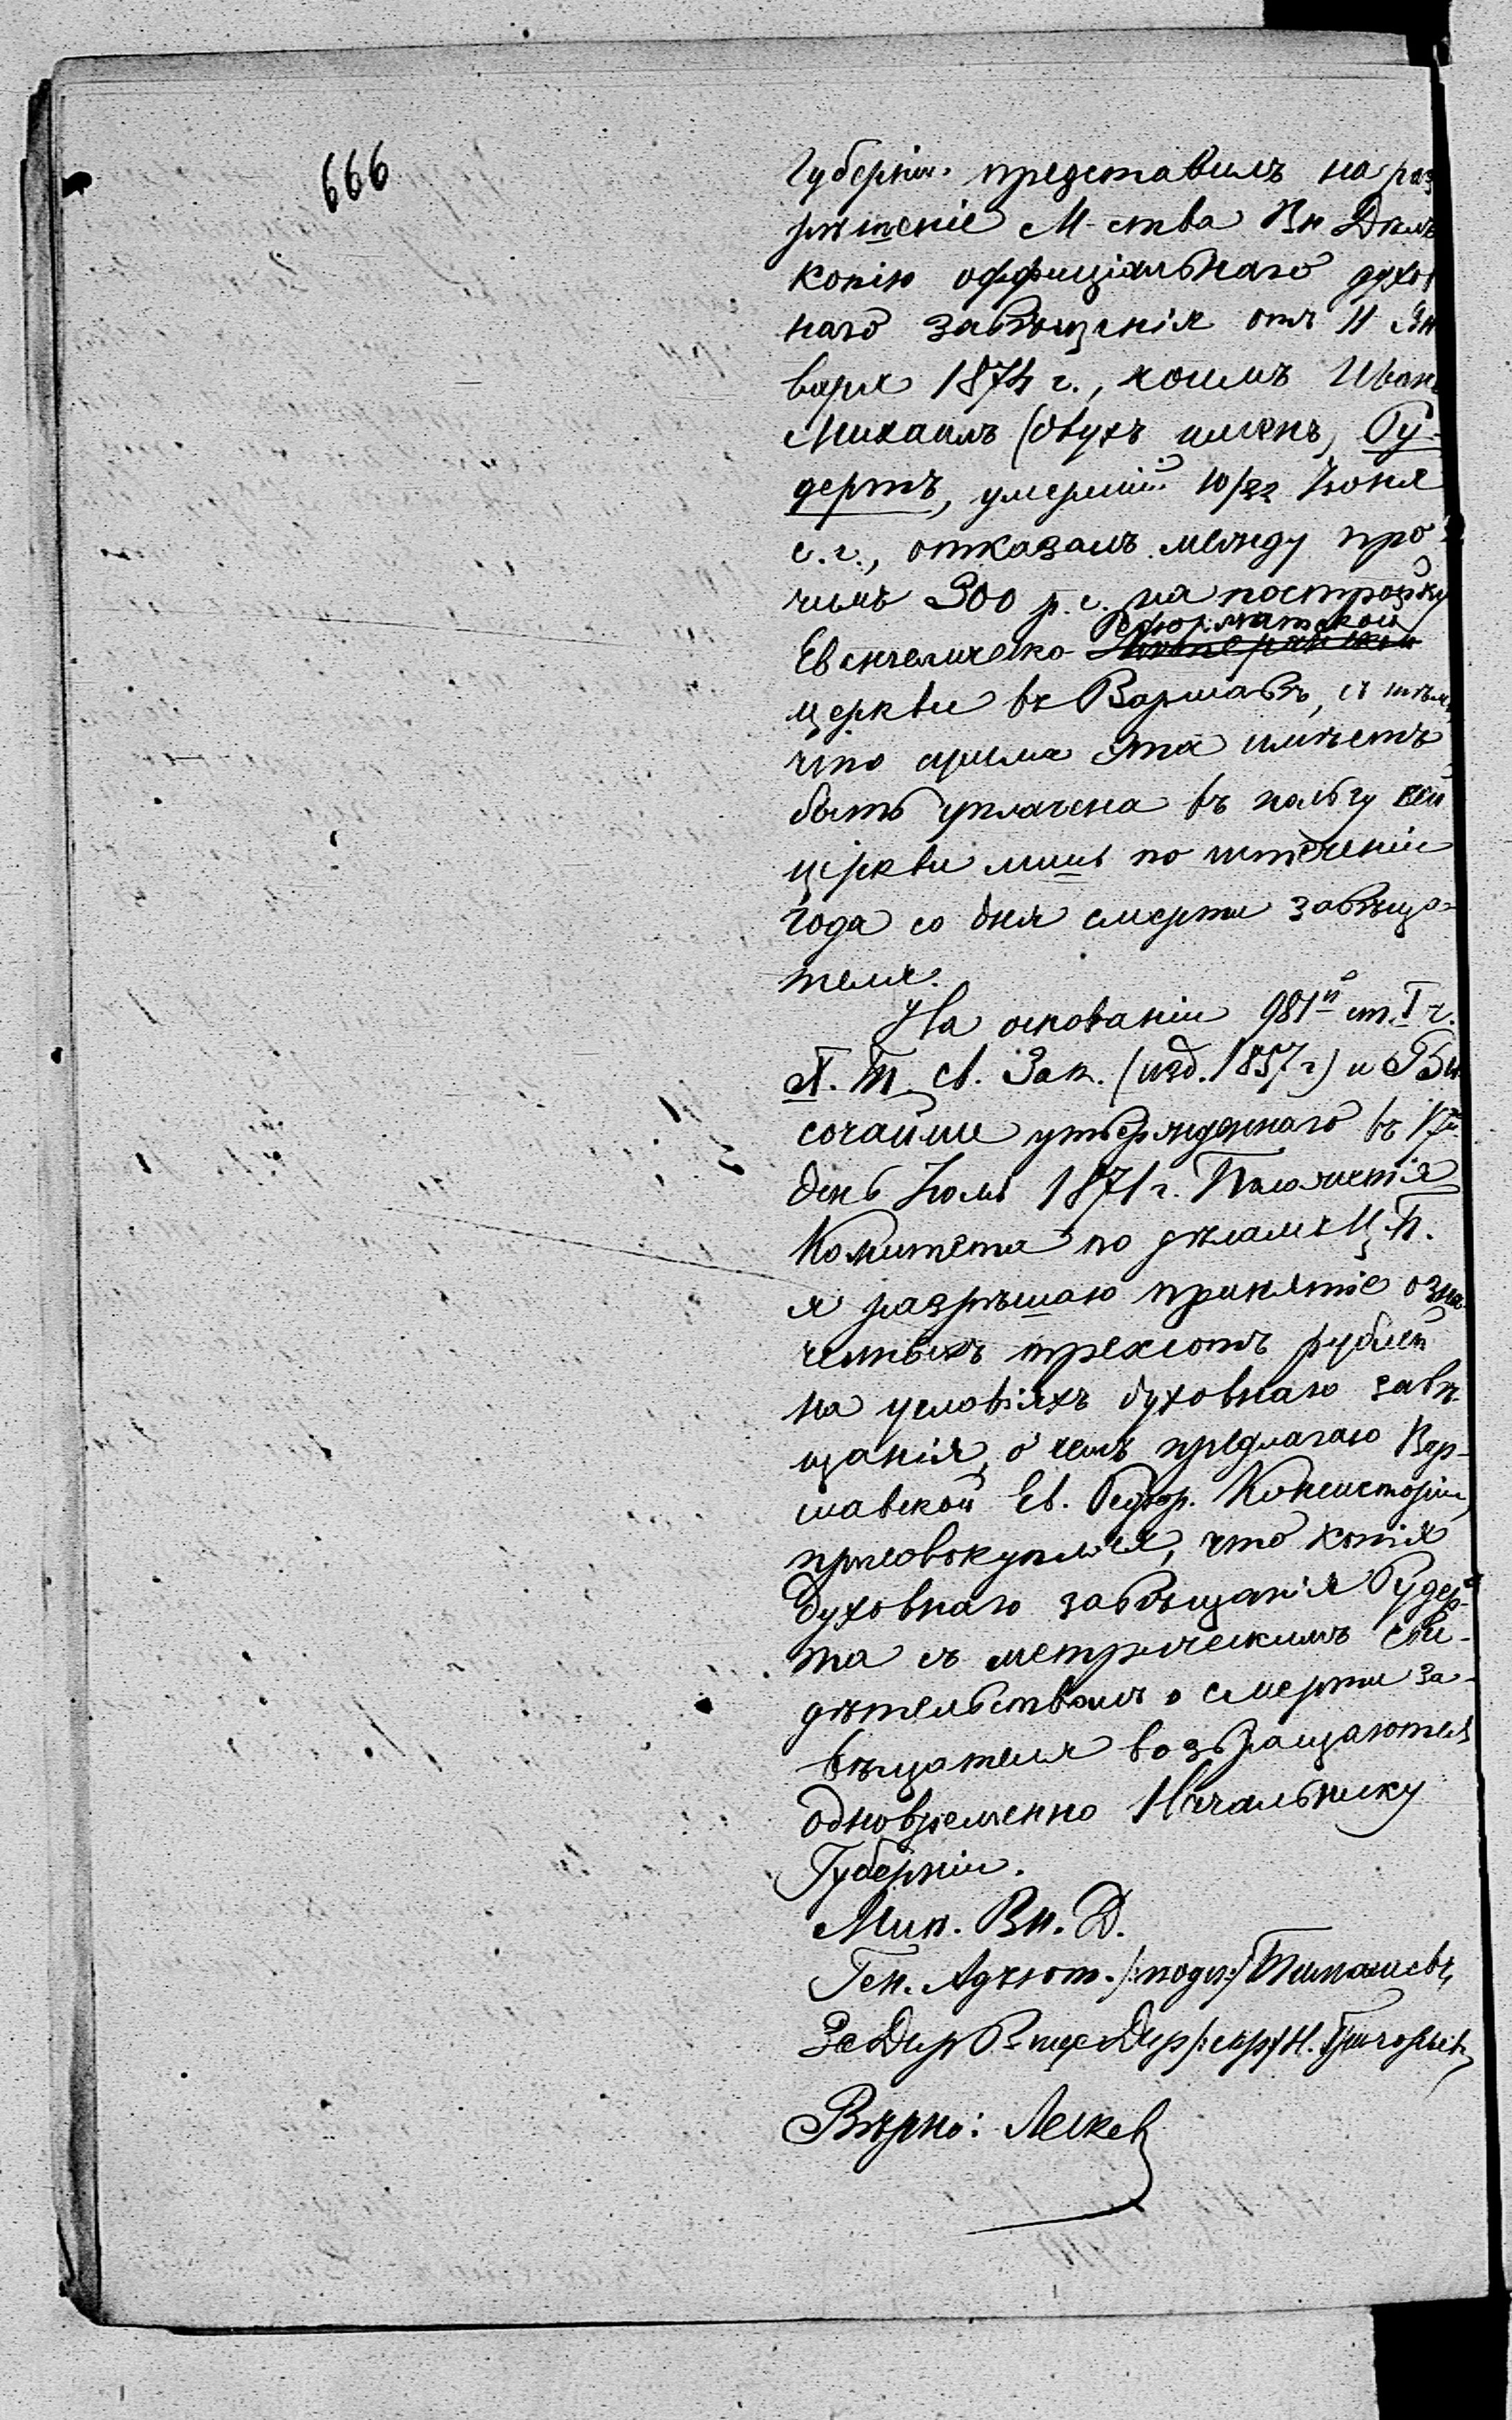 666
Губерніи представилъ на раз
рѣшеніе М-ства Вн Дѣлъ
копію оффиціальнаго духов
наго завѣщанія отъ 11 Ян
варя 1874 г., коимъ Иванъ
Михаилъ (двухъ именъ) Ру-
дертъ, умершій 10/22 Іюня
с. г., отказалъ между про
чимъ 300 р. с. на постройку
Реформатской
Евангелическо
церкви въ Варшавѣ, съ тѣмъ,
что сумма эта имѣетъ
быть уплачена въ пользу сей
церкви лишь по истеченіи
года со дня смерти завѣща-
теля.
На основаніи 981й ст. I ч.
X. Т. Св. Зак. (изд. 1857 г) и Вы
сочайше утвержденнаго въ 17й
день Іюля 1871 г. Положенія
Комитета по дѣламъ Ц. П.
я разрѣшаю принятіе озна
ченныхъ трехсотъ рублей
на условіяхъ духовнаго завѣ
щанія, о чемъ предлагаю Вар-
шавской Ев. Рефор. Консисторіи,
присовокупляя, что копія
духовнаго завѣщанія Рудер-
та съ метрическимъ сви-
дѣтельствомъ о смерти за-
вѣщателя возвращаются
одновременно Начальнику
Губерніи.
Мин. Вн. Д.
Ген. Адъют. /:подп:/ Тимашевъ,
За Дир Вице Дир /:скр:/ Н. Григорьевъ
Вѣрно: